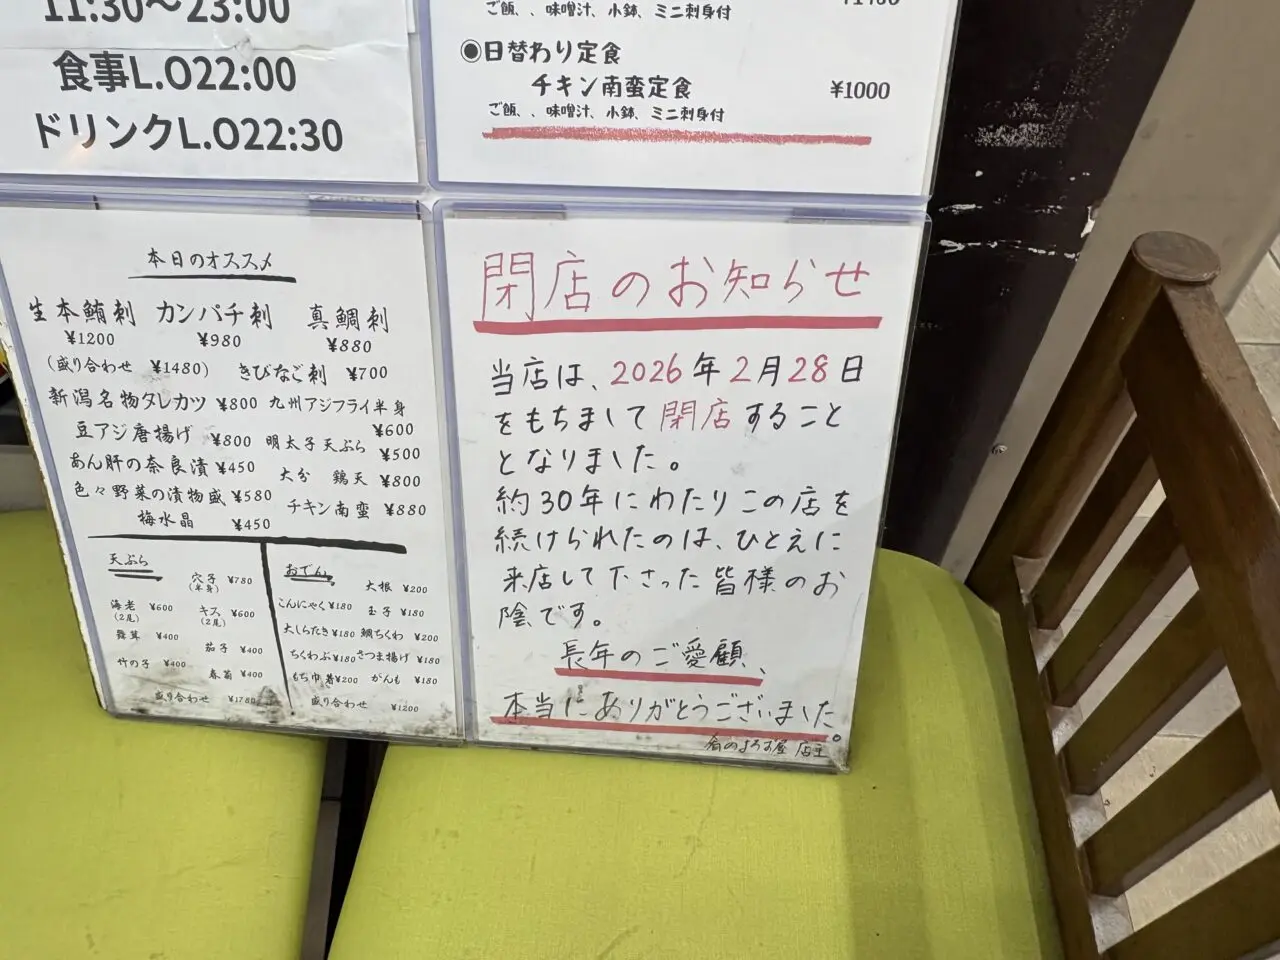 11:30～23:00
食事L.O22:00
ドリンクL.O22:30
ご飯、、味噌汁、小鉢、ミニ刺身付
◉日替わり定食
チキン南蛮定食 ¥1000
ご飯、、味噌汁、小鉢、ミニ刺身付
本日のオススメ
生本鮪刺 カンパチ刺 真鯛刺
¥1200 ¥980 ¥880
(盛り合わせ ¥1480) きびなご刺 ¥700
新潟名物タレカツ ¥800 九州アジフライ半身
¥600
豆アジ唐揚げ ¥800 明太子天ぷら ¥500
あん肝の奈良漬 ¥450 大分 鶏天 ¥800
色々野菜の漬物盛 ¥580 チキン南蛮 ¥880
梅水晶 ¥450
天ぷら
穴子 ¥780
(半身)
海老 ¥600 キス ¥600
(2尾) (2尾)
舞茸 ¥400 茄子 ¥400
竹の子 ¥400 春菊 ¥400
盛り合わせ ¥1780
おでん
大根 ¥200
こんにゃく ¥180 玉子 ¥180
大しらたき ¥180 鯛ちくわ ¥200
ちくわぶ ¥180 さつま揚げ ¥180
もち巾着 ¥200 がんも ¥180
盛り合わせ ¥1200
閉店のお知らせ
当店は、2026年2月28日
をもちまして閉店すること
となりました。
約30年にわたりこの店を
続けられたのは、ひとえに
来店して下さった皆様のお
陰です。
長年のご愛顧、
本当にありがとうございました。
店主